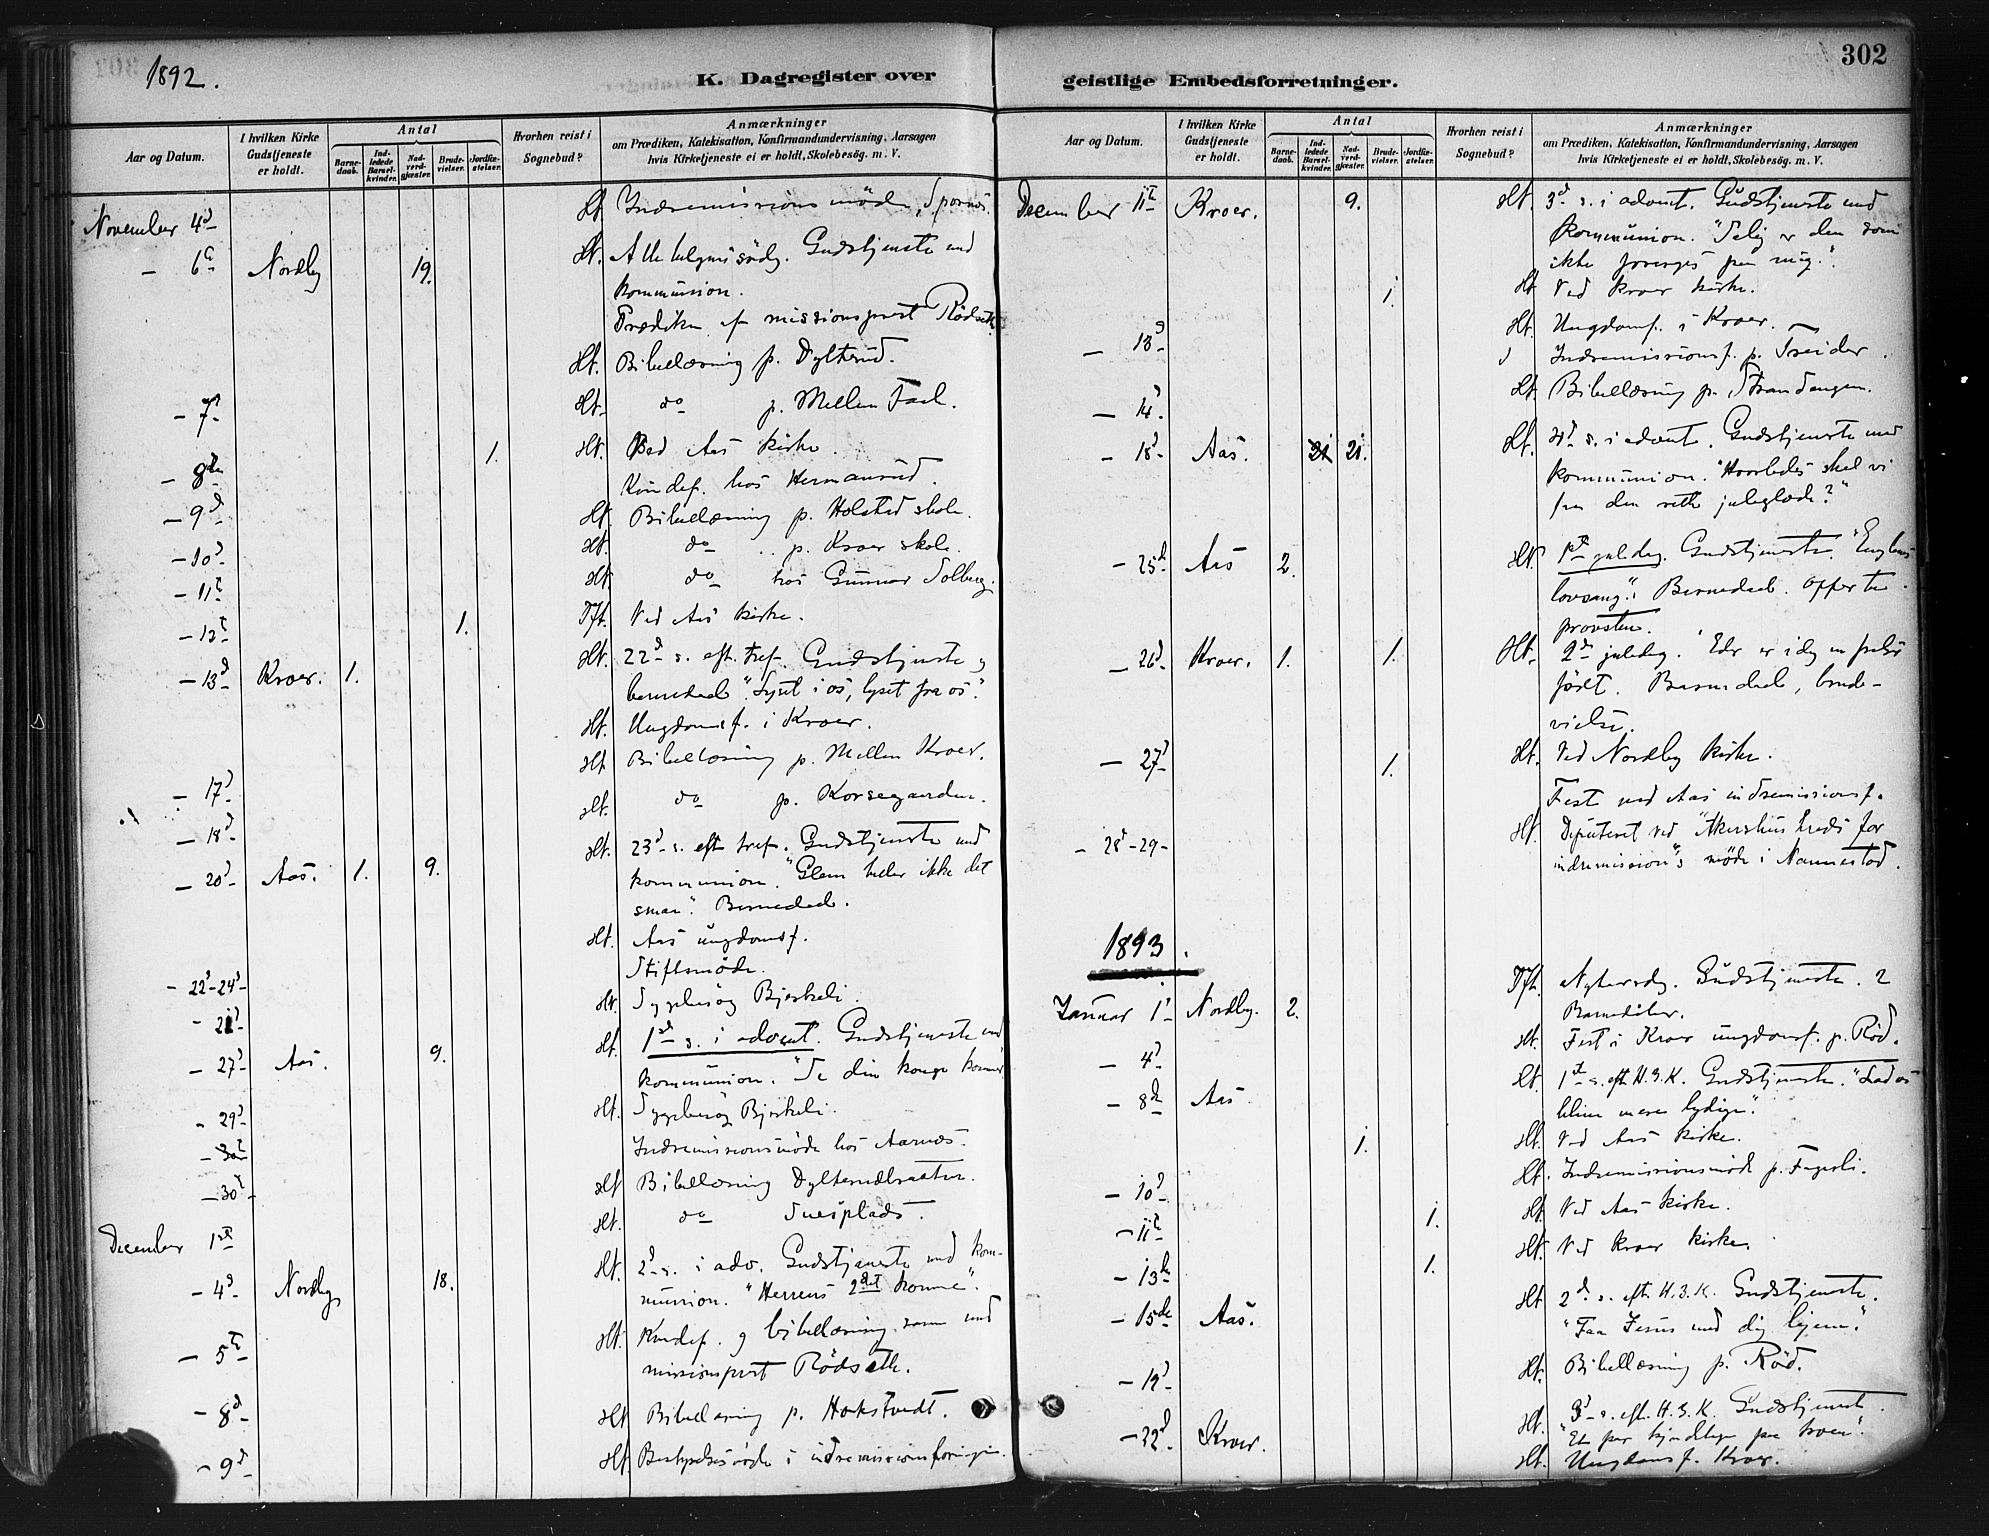 1892.
K. Dagregister over
Aar og Datum.
I hvilken Kirke Gudstjeneste er holdt.
Antal
Barne-daab.
Ind-ledede Barsel-kvinder.
Nad-verd-gjæster.
Brude-vielser.
Jordfæ-stelser.
Hvorhen reist i Sognebud?
Anmærkninger
om Prædiken, Katekisation, Konfirmandundervisning, Aarsagen
hvis Kirketjeneste ei er holdt, Skolebesøg. m. V.
November 4d Hf. Indremissionsmöde, Spornes.
— 6te Nordby 19. Hf. Allehelgensdg. Gudstjeneste med
kommunion.
Prædiken af missionsprest Rödseth.
Hf. Bibellæsning p. Dyltersud.
— 7d Hf. do p. Mellem Fael.
— 8de 1. Hf. Ved Aas kirke.
Kvindef. hos Hermansrud.
— 9d Hf. Bibellæsning p. Holstad skole.
— 10d Hf. do p. Kroer skole.
— 11te Hf. do hos Gunnar Solberg.
— 12te 1. Tft. Ved Aas kirke.
— 13d Kroer. 1. Hf. 22d s. eft. tref. Gudstjeneste og
barnedaab. "Lyset i os, lyset fra os".
Hf. Ungdomsf. i Kroer.
— 17d Hf. Bibellæsning p. Mellem Kroer.
— 18d Hf. do p. Korsegaarden.
— 20d Aas. 1. 9. Hf. 23d s. eft. tref. Gudstjeneste med
kommunion. "Glem heller ikke det
smaa". Barnedaab.
Hf. Aas ungdomsf.
— 22d-24d Stiftsmöde.
Hf. Sygebesög Bjerkeli.
— 27d Aas. 9. Hf. 1ste s. i advent. Gudstjeneste med
kommunion. "Se din konge kommer
— 29d Hf. Sygebesög Bjerkeli.
— 30te Indremissionsmöde hos Aarnes.
— 30te Hf. Bibellæsning Dyltersudbraaten.
December 1ste Hf. do Suesplads.
— 4d Nordby 18. Hf. 2d s. i adv. Gudstjeneste med kom-
munion. "Herrens 2det komme".
— 5te Hf. Kvindef. og bibellæsning samm. med
missionsprest Rödseth.
— 8d Hf. Bibellæsning p. Hokstvedt.
— 9d Hf. Bestyrelsesmöde i indremissionsforeningen.
302
geistlige Embedsforretninger.
Aar og Datum.
I hvilken Kirke Gudstjeneste er holdt.
Antal
Barne-daab.
Ind-ledede Barsel-kvinder.
Nad-verd-gjæster.
Brude-vielser.
Jordfæ-stelser.
Hvorhen reist i Sognebud?
Anmærkninger
om Prædiken, Katekisation, Konfirmandundervisning, Aarsagen
hvis Kirketjeneste ei er holdt, Skolebesøg. m. V.
December 11te Kroer. 9. Hf. 3d s. i advent. Gudstjeneste med
kommunion. "Salig er den som
ikke forarges paa mig".
1. Hf. Ved Kroer kirke.
Hf. Ungdomsf. i Kroer.
— 13d Indremissionsf. p. Treider.
— 14d Hf. Bibellæsning p. Strandengen.
— 18d Aas. 21. Hf. 4d s. i advent. Gudstjeneste med
kommunion. "Hvorledes skal vi
faa den rette juleglæde?"
— 25d Aas 2. Hf. 1ste juledag. Gudstjeneste. "Englenes
lovsang". Barnedaab. Offer til
provsten.
— 26d Kroer. 1. 1. Hf. 2den juledag. "Eder er i dag en frelser
födt. Barnedaab, brude-
vielse.
— 27d 1. Hf. Ved Nordby kirke.
Fest med Aas indremissionsf.
— 28d-29- Hf. Deputeret ved "Akershus kreds for
indremission"s möde i Nannestad.
1893.
Januar 1. Nordby. 2. Tft. Nytaarsdg. Gudstjeneste. 2
Barnedaab.
— 4d Hf. Fest i Kroer ungdomsf. p. Röd.
— 8de Aas. Hf. 1ste s. eft. H.3.K. Gudstjeneste. "Lad os
blive mere lydige".
1. Hf. Ved Aas kirke.
— 10d Hf. Indremissionsmöde p. Fagerli.
— 11te 1. Hf. Ved Aas kirke.
— 13de 1. Hf. Ved Kroer kirke.
— 15de Aas. Hf. 2d s. eft. H.3.K. Gudstjeneste.
"Faa Jesus med dig hjem".
— 19d Hf. Bibellæsning p. Röd.
— 22d. Kroer. Hf. 3d s. eft. H.3.K. Gudstjeneste.
"Et par kjendetegn paa troen".
Hf. Ungdomsf. Kroer.